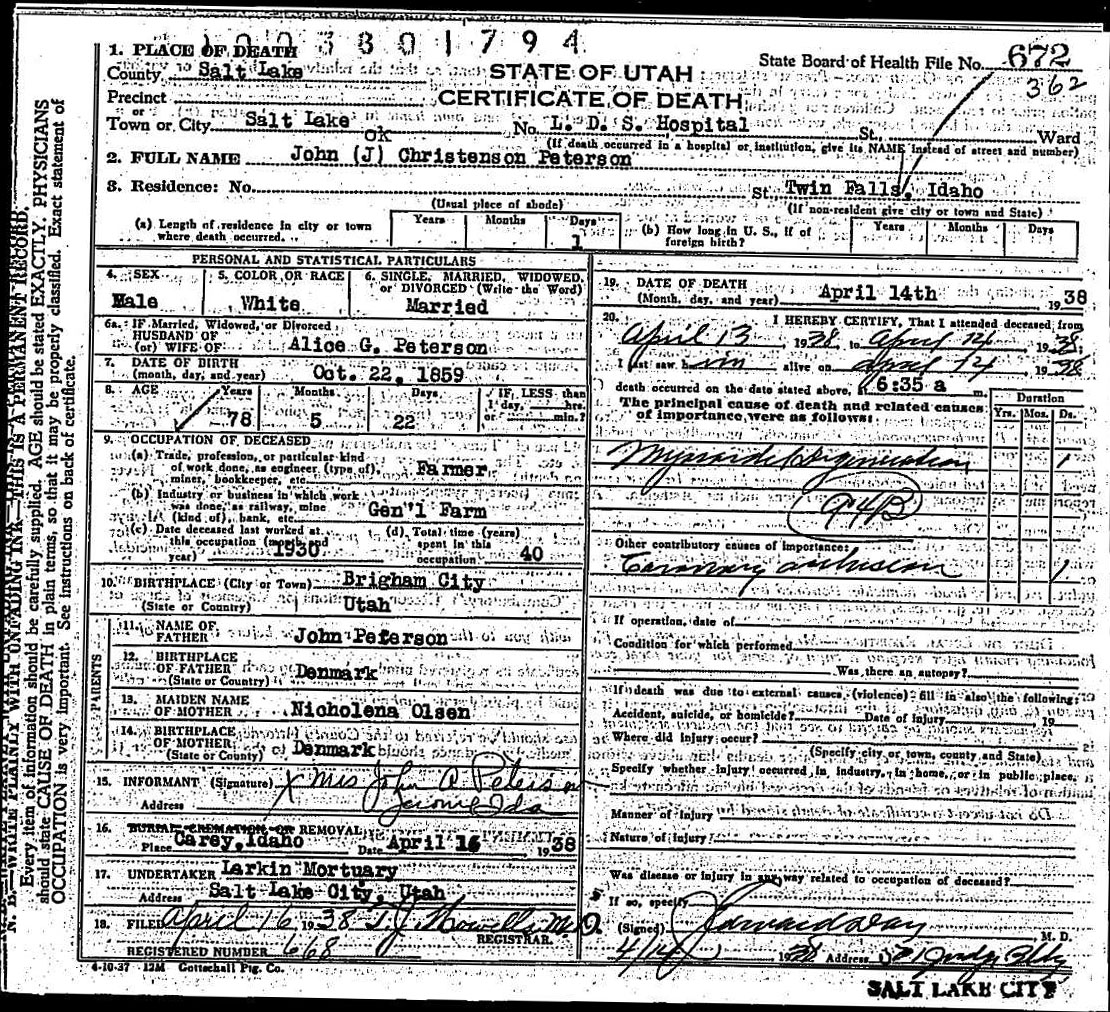 1003801794
1. PLACE OF DEATH
County Salt Lake
STATE OF UTAH
State Board of Health File No. 672
362
Precinct
or
CERTIFICATE OF DEATH
Town or City Salt Lake No. L. D. S. Hospital St. Ward
OK
(If death occurred in a hospital or institution, give its NAME instead of street and number)
2. FULL NAME John (J) Christenson Peterson
3. Residence: No. St. Twin Falls, Idaho
(Usual place of abode) (If non-resident give city or town and State)
(a) Length of residence in city or town where death occurred. Years Months Days 1
(b) How long in U. S., if of foreign birth? Years Months Days
PERSONAL AND STATISTICAL PARTICULARS
4. SEX 5. COLOR OR RACE 6. SINGLE, MARRIED, WIDOWED, or DIVORCED (Write the Word)
Male White Married
6a. IF Married, Widowed, or Divorced
HUSBAND OF
(or) WIFE OF Alice G. Peterson
7. DATE OF BIRTH
(month, day, and year) Oct. 22, 1859
8. AGE Years Months Days IF LESS than 1 day, hrs. or min.?
78 5 22
9. OCCUPATION OF DECEASED
(a) Trade, profession, or particular kind of work done, as engineer (type of), miner, bookkeeper, etc. Farmer
(b) Industry or business in which work was done, as railway, mine (kind of), bank, etc. Gen'l Farm
(c) Date deceased last worked at this occupation (month and year) 1930
(d) Total time (years) spent in this occupation 40
10. BIRTHPLACE (City or Town) Brigham City
(State or Country) Utah
PARENTS
11. NAME OF FATHER John Peterson
12. BIRTHPLACE OF FATHER
(State or Country) Denmark
13. MAIDEN NAME OF MOTHER Nicholena Olsen
14. BIRTHPLACE OF MOTHER
(State or Country) Denmark
15. INFORMANT (Signature) X Mrs John A Peterson
Address Jerome Ida
16. BURIAL CREMATION OR REMOVAL
Place Carey, Idaho Date April 16 1938
17. UNDERTAKER Larkin Mortuary
Address Salt Lake City, Utah
18. FILED April 16 1938 T. J. Howells M.D.
REGISTRAR.
REGISTERED NUMBER 668
4-10-37 12M Gottschall Ptg. Co.
19. DATE OF DEATH
(Month, day, and year) April 14th 1938
20. I HEREBY CERTIFY, That I attended deceased from
April 13 1938, to April 14 1938,
I last saw him alive on April 14 1938
death occurred on the date stated above, at 6:35 a m.
The principal cause of death and related causes of importance were as follows:
Duration
Yrs. Mos. Ds.
Myocardial Degeneration 1
94B
Other contributory causes of importance:
Coronary occlusion 1
If operation, date of
Condition for which performed
Was there an autopsy?
If death was due to external causes (violence) fill in also the following:
Accident, suicide, or homicide? Date of injury 19
Where did injury occur?
(Specify city or town, county and State)
Specify whether injury occurred in industry, in home, or in public place.
Manner of injury
Nature of injury
Was disease or injury in any way related to occupation of deceased?
If so, specify
(Signed) M. D.
4/14 1938 Address Judge Bldg
SALT LAKE CITY
N. B.—WRITE PLAINLY WITH UNFADING INK—THIS IS A PERMANENT RECORD.
Every item of information should be carefully supplied. AGE should be stated EXACTLY. PHYSICIANS
should state CAUSE OF DEATH in plain terms, so that it may be properly classified. Exact statement of
OCCUPATION is very important. See instructions on back of certificate.